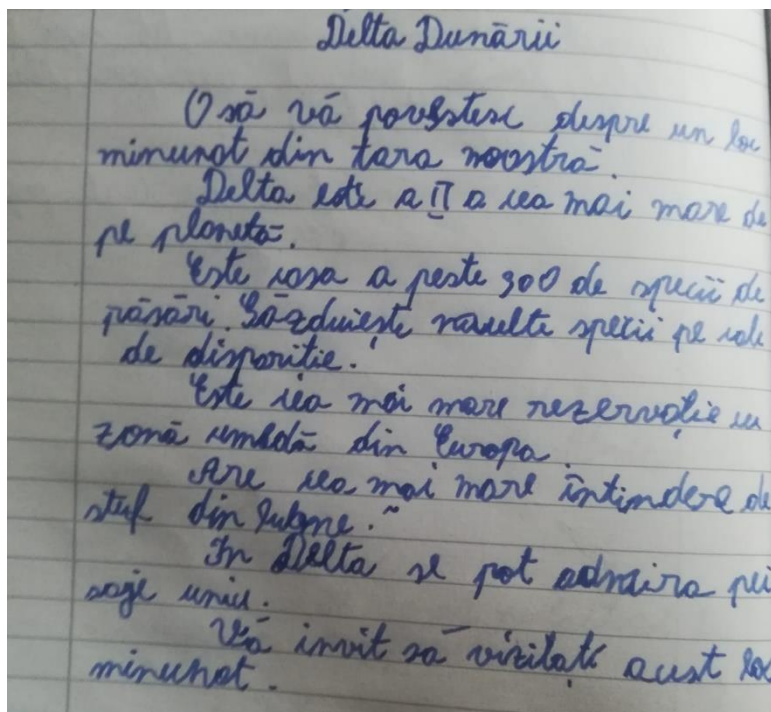 Delta Dunării
O să vă povestesc despre un loc
minunat din tara noastră.
Delta este a II a cea mai mare de
pe planetă.
Este casa a peste 300 de specii de
păsări. Găzduiește multe specii pe cale
de dispariție.
Este cea mai mare rezervație cu
zonă umedă din Europa.
Are cea mai mare întindere de
stuf din lume.
In Delta se pot admira pei
saje unice.
Vă invit să vizitați acest loc
minunat.